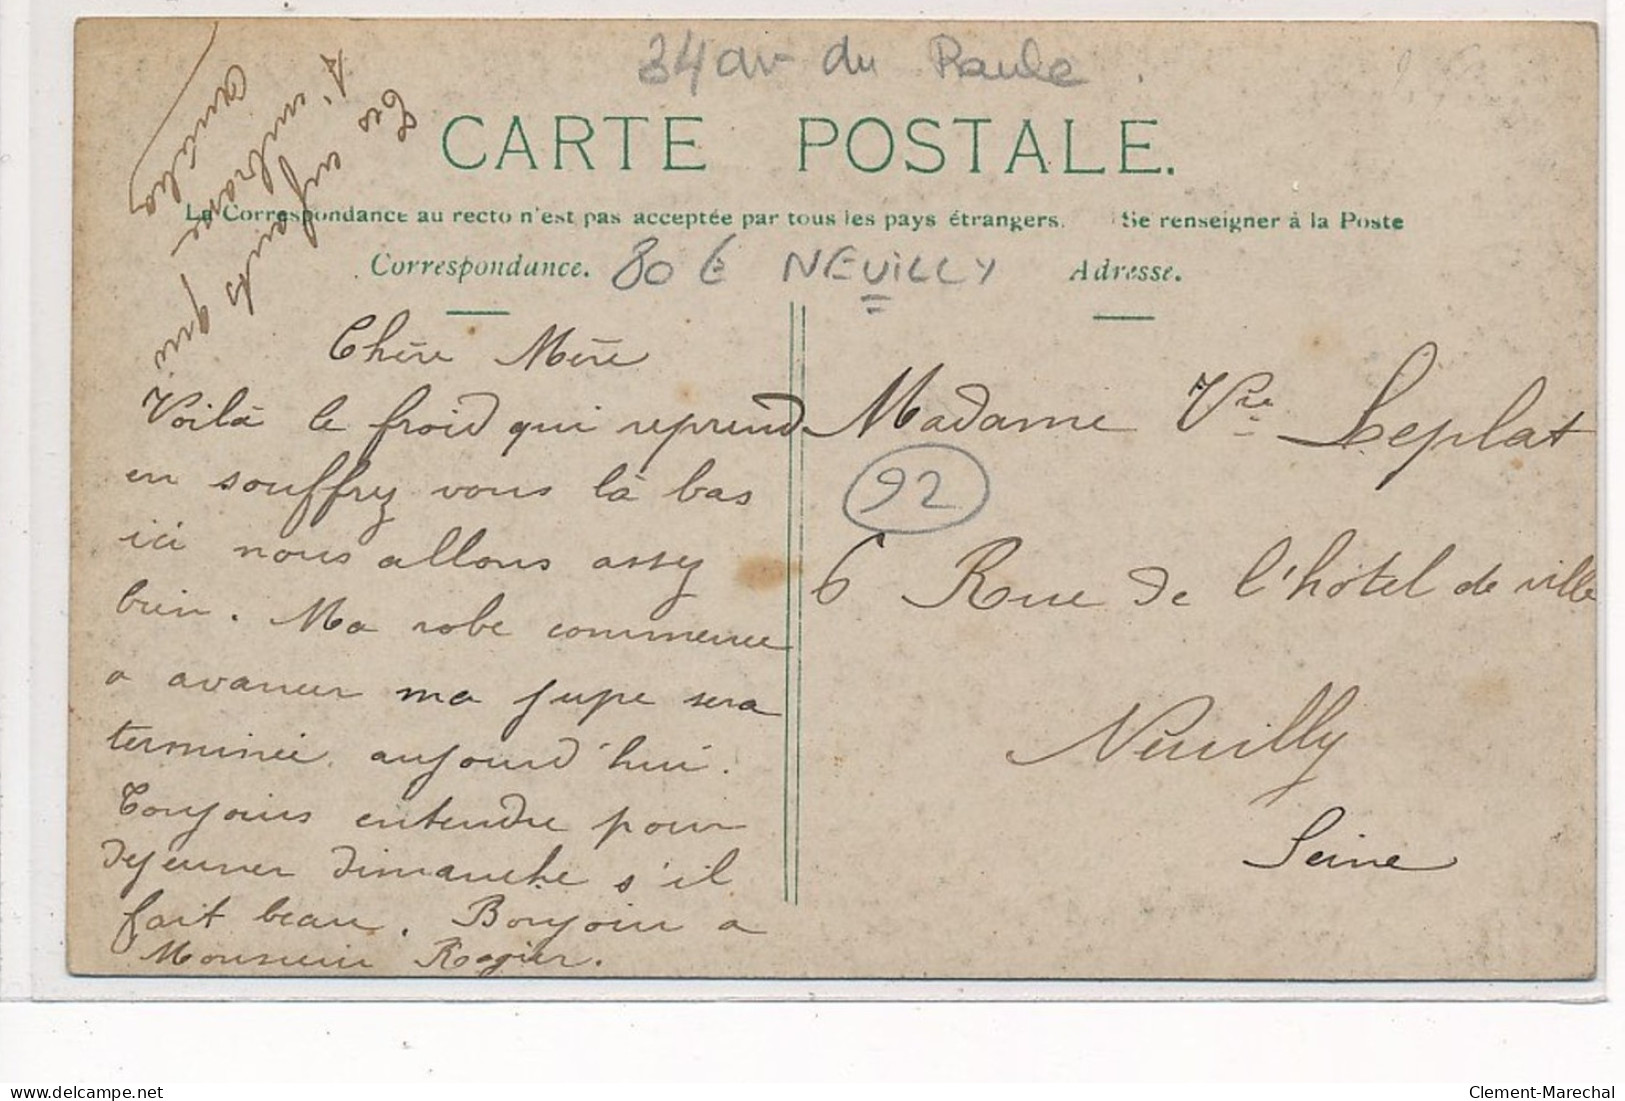 34 av du Roule
CARTE POSTALE.
La Correspondance au recto n'est pas acceptée par tous les pays étrangers. Se renseigner à la Poste
Correspondance.
80 € NEUILLY
Adresse.
Chère Mère
Voilà le froid qui reprend
en souffrez vous là bas
ici nous allons assez
bien. Ma robe commence
a avancer ma jupe sera
terminée aujourd'hui.
Toujours entendre pour
dejeuner dimanche s'il
fait beau. Bonjour a
Monsieur Rogier.
Tes enfants qui
t'embrasse
Madame Vve Leplat
92
6 Rue de l'hôtel de ville
Neuilly
Seine
delcampe.net
Clement-Marechal